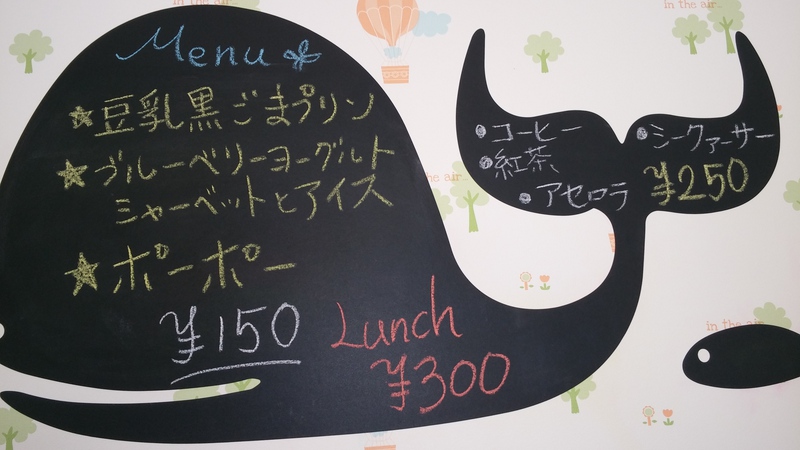 in the air...
in the air...
Menu
★豆乳黒ごまプリン
★ブルーベリーヨーグルト
シャーベットとアイス
★ポーポー
¥150
Lunch
¥300
•コーヒー
•紅茶
•アセロラ
•シークァーサー
¥250
the air...
in the air...